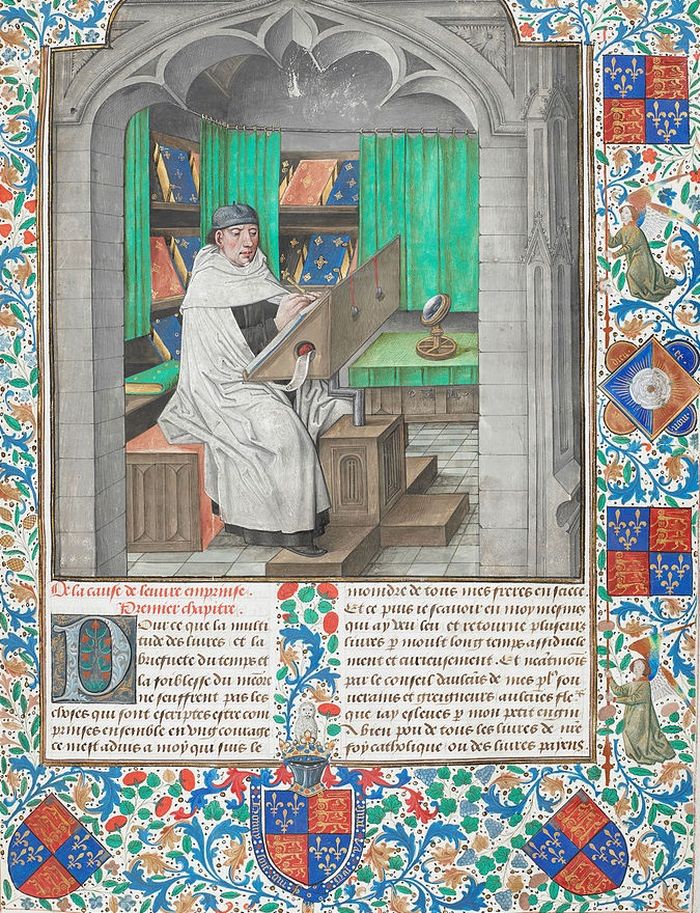 De la cause de leuure emprinse.
Premier chapitre.
Pour ce que la multi
tude des liures et la
briefuete du temps et
la foiblesse du
ne seuffrent pas les
choses qui sont escriptes estre com
prinses ensemble en vng courage
ce mest aduis a moy qui suis le
moindre de tous mes freres en
Et ce puis ie scauoir en moy mesmes
qui ay veu leu et retourne pluseurs
liures p moult long temps assiduele
ment et curieusement. Et neatmois
par le conseil daulcus de mes pl9 sou
uerains et greigneurs aulcunes fle
que iay esleues p mon petit engin
A bien pou de tous les liures de nre
foy catholique ou des liures paiens
Dieu et